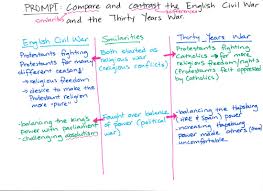 PROMPT: Compare and contrast the English Civil War
similarities differences
and the Thirty Years War.
English Civil War
Protestants fighting
Protestants for many
different reasons:
• religious freedom
• desire to make the
Protestant religion
more "pure"
• balancing the king's
power with parliament
• challenging absolutism
Similarities
Both started as
religious war
(religious conflicts)
Fought over balance
of power (political
war)
Thirty Years War
Protestants fighting
Catholics for more
religious freedom/rights
(Protestants felt oppressed
by Catholics)
• balancing the Hapsburg
(HRE & Spain) power
• increasing Hapsburg
power made others
uncomfortable